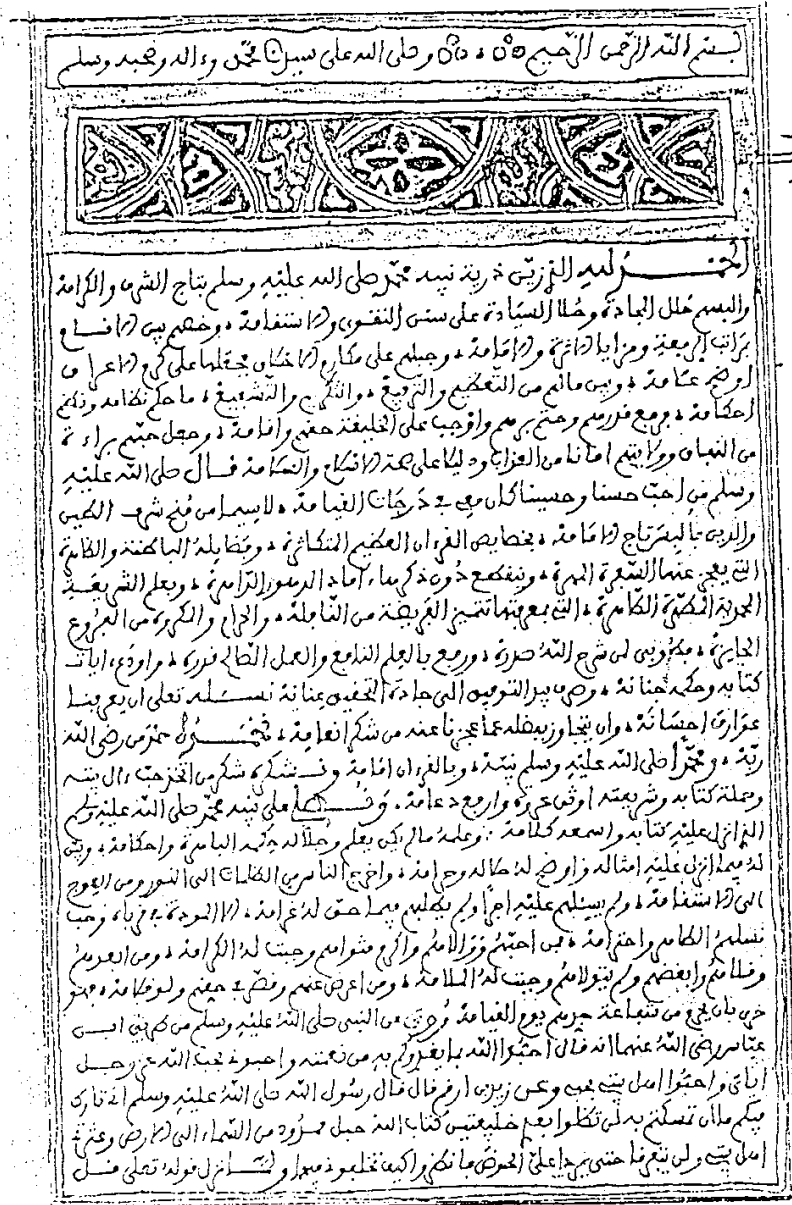 بسم الله الرحمن الرحيم وصلى الله على سيدنا محمد وءاله وصحبه وسلم
الحمد لله الذي زين ذرية نبيه محمد صلى الله عليه وسلم بتاج الشرف والكرامة
والبسهم حلل المجادة وحلا السيادة على سنن التقوى والاستقامة، وخصهم بين الانام
بمراتب الرفعة ومزايا الاثرة والامامة، وجبلهم على مكارم
وبين مالهم من التعظيم والترفيع، والتكريم والتشريف، ما حكم
احكامه، ورفع قدرهم وحتم برهم واوجب على الخليقة حقهم واقامه، وجعل حبهم براءة
من النار وولايتهم امانا من العذاب ودليلا على صحة قال صلى الله عليه
وسلم من احب حسنا وحسينا كان معي في درجات القيامة، لا سيما من منح شرف الطين
والدين تاج الامامة، بخصايص القرءان العظيم المتكاثرة، وفضايله الباطنة والظاهرة
التي يعجز عنها السفرة المهرة، وينقطع دون ذكرها ءاماد الدهور الزامرة، وبعلم الشريعة
المحمدية المطهرة الطاهرة، التي بمعرفتها تتميز الفريضة من النافلة، والحرام والمكروه من الفروع
الجايزة، فطوبى لمن شرح الله صدره، ورفع بالعلم النافع والعمل الصالح قدره، واودع ءايات
كتابه وحكمه جنانه، وصرف بيد التوفيق الى جادة التحقيق عنانه نسئله تعلى ان يعرفنا
عوارف احسانه، وان يتجاوز بفضله عما عجزنا عنه من شكر انعامه، نحمده حمد من رضي الله
ربه، ومحمدا صلى الله عليه وسلم نبيه، وبالقرءان امامه ونشكره شكر من اتخذ حب ءال بيته
وحملة كتابه وشريعته اوثق عروة وارفع دعامة، ونصلي على نبيه محمد صلى الله عليه وسلم
الذي انزل عليه كتابه واسمعه كلامه، وعلمه ما لم يكن يعلم وجلا له حكمه الباهرة واحكامه، وبين
له فيما انزل عليه امثاله واوضح له حلاله وحرامه، واخرج الناس من الظلمات الى النور ومن العوج
الى الاستقامة، ولم يسئلهم عليه اجرا ولم يطلبهم فيما حق له غرامة، الا المودة في قرباه وحب
نسله الطاهر واحترامه، فمن احبهم ووالاهم واكرم مثواهم وجبت له الكرامة، ومن
وقلاهم وابغضهم ولم يتولاهم وجبت له الملامة، ومن اعرض عنهم وقصر في حقهم ولو قلامة، فهو
حري بان يحرم من شفاعة جدهم يوم القيامة وروي عن النبي صلى الله عليه وسلم من طريق ابن
عباس رضي الله عنهما انه قال احبوا الله لما يغذوكم به من نعمته واحبوني لحب الله عز وجل
اياي واحبوا اهل بيتي لحبي وعن زيد بن ارقم قال قال رسول الله صلى الله عليه وسلم اني تارك
فيكم ما ان تمسكتم به لن تضلوا بعدي خليفتين كتاب الله حبل ممدود من السماء الى الارض وعترتي
اهل بيتي ولن يتفرقا حتى يردا علي الحوض فانظروا كيف تخلفوني فيهما ولما انزل قوله تعلى قل